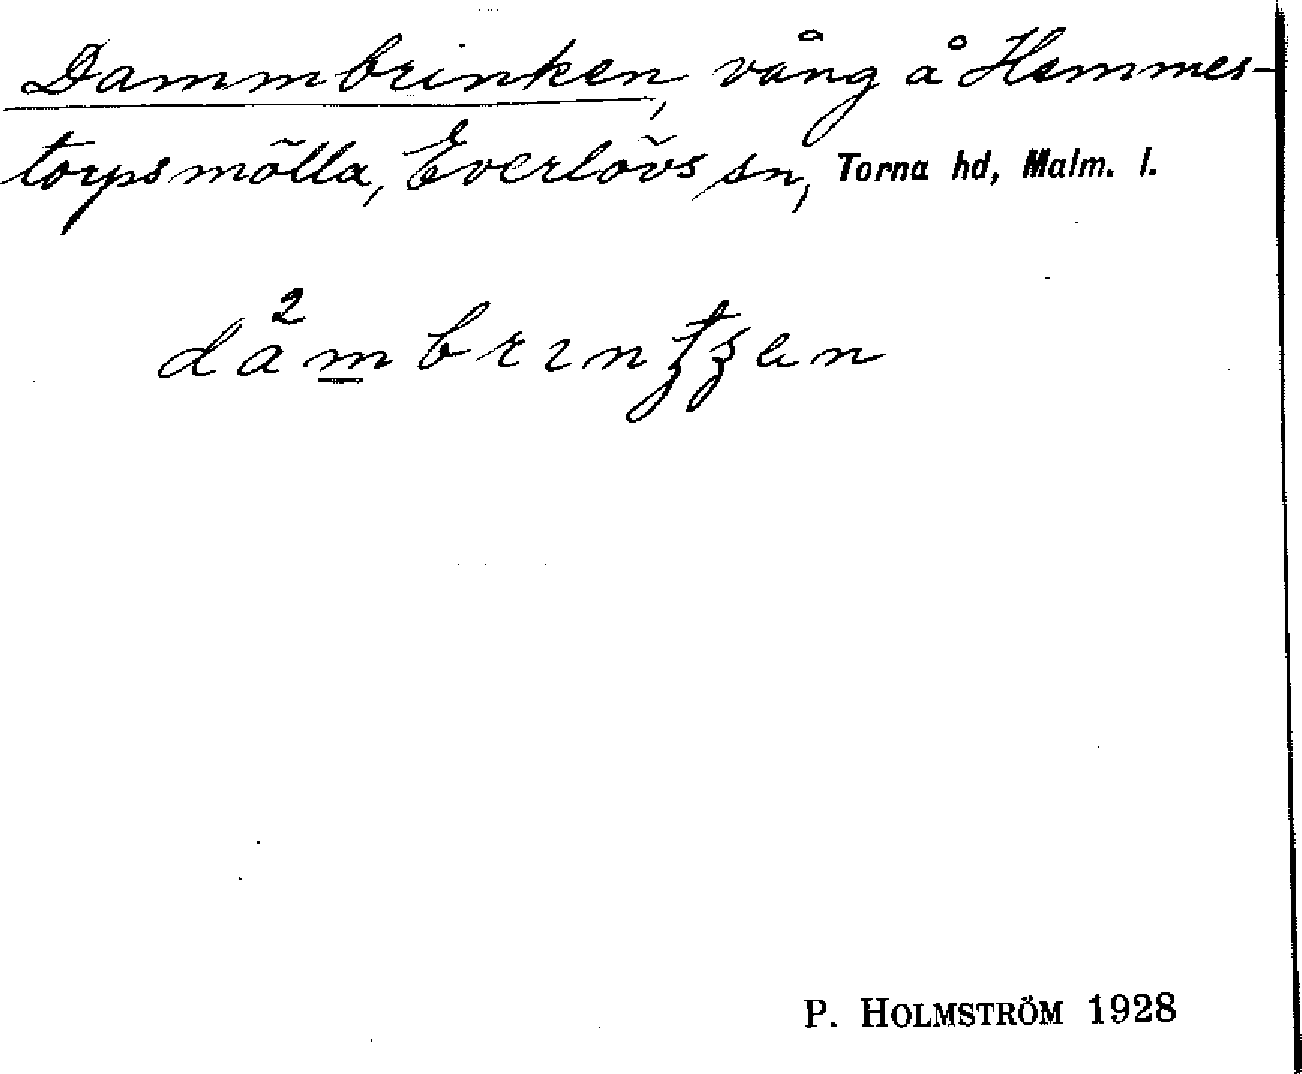 Dammbrinken, vång å Hemmes-
torpsmölla, Everlövs sn, Torna hd, Malm. l.
P. HOLMSTRÖM 1928